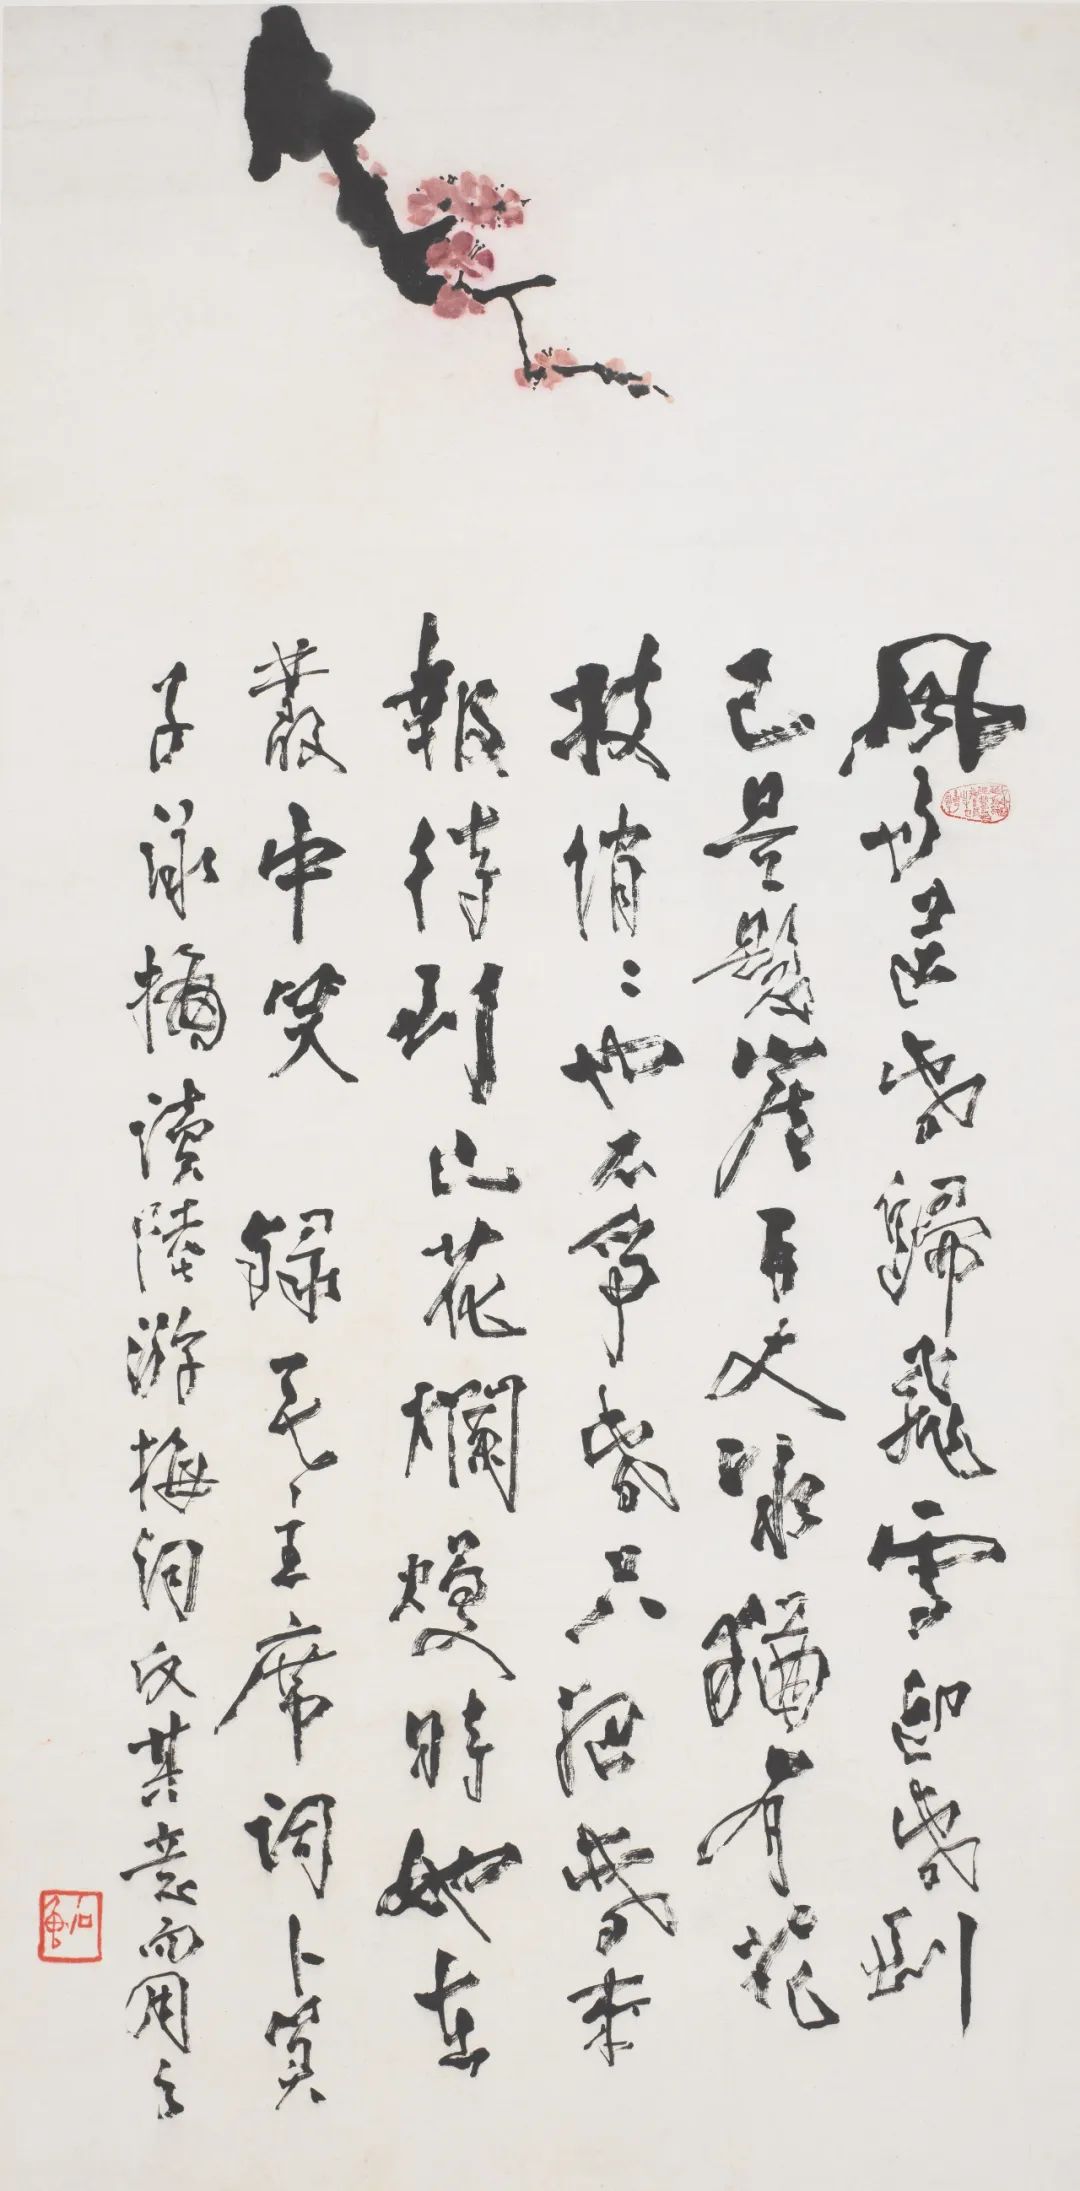 風雨送春歸飛雪迎春到
已是懸崖百丈冰猶有花
枝俏〻也不爭春只把春來
報待到山花爛熳時她在
叢中笑 錄毛主席調卜算
子詠梅讀陸游梅詞反其意而用之
石魯